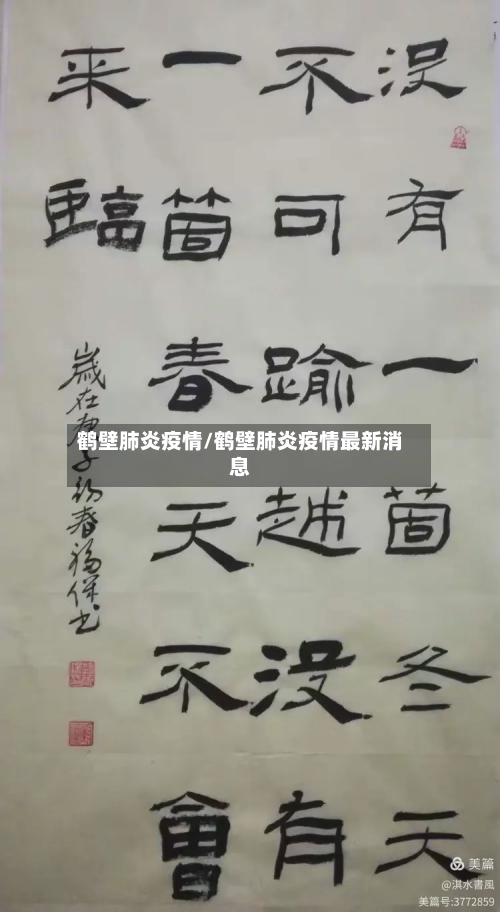 没有一箇冬天
不可踰越没有
一箇春天不會
来臨
歲在庚子初春福保书
鹤壁肺炎疫情/鹤壁肺炎疫情最新消
息
美篇
@淇水書風
美篇号:3772859